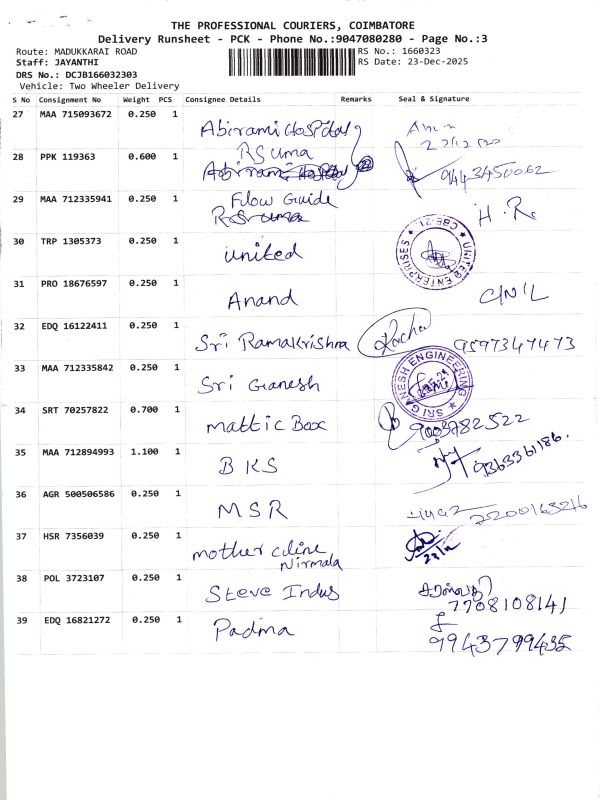 THE PROFESSIONAL COURIERS, COIMBATORE
Delivery Runsheet - PCK - Phone No.:9047080280 - Page No.:3
Route: MADUKKARAI ROAD RS No.: 1660323
Staff: JAYANTHI RS Date: 23-Dec-2025
DRS No.: DCJB166032303
Vehicle: Two Wheeler Delivery
S No Consignment No Weight PCS Consignee Details Remarks Seal & Signature
27 MAA 715093672 0.250 1 Abirami Hospital
28 PPK 119363 0.600 1 RS uma 9443450062
Abirami Hospital
29 MAA 712335941 0.250 1 Flow Guide H.R.
RS uma
30 TRP 1305373 0.250 1 United UNITED ENTERPRISES ★ CBE-21 ★
31 PRO 18676597 0.250 1 Anand
32 EDQ 16122411 0.250 1 Sri Ramakrishna 9597347473
33 MAA 712335842 0.250 1 Sri Ganesh SRI GANESH ENGINEERING ★
34 SRT 70257822 0.700 1 mattic Box 9003782522
35 MAA 712894993 1.100 1 BKS 9363361186.
36 AGR 500506586 0.250 1 MSR
37 HSR 7356039 0.250 1 mother cline
Nirmala
38 POL 3723107 0.250 1 Steve Indus சரஸ்வதி
7708108141
39 EDQ 16821272 0.250 1 Padma
9943799435